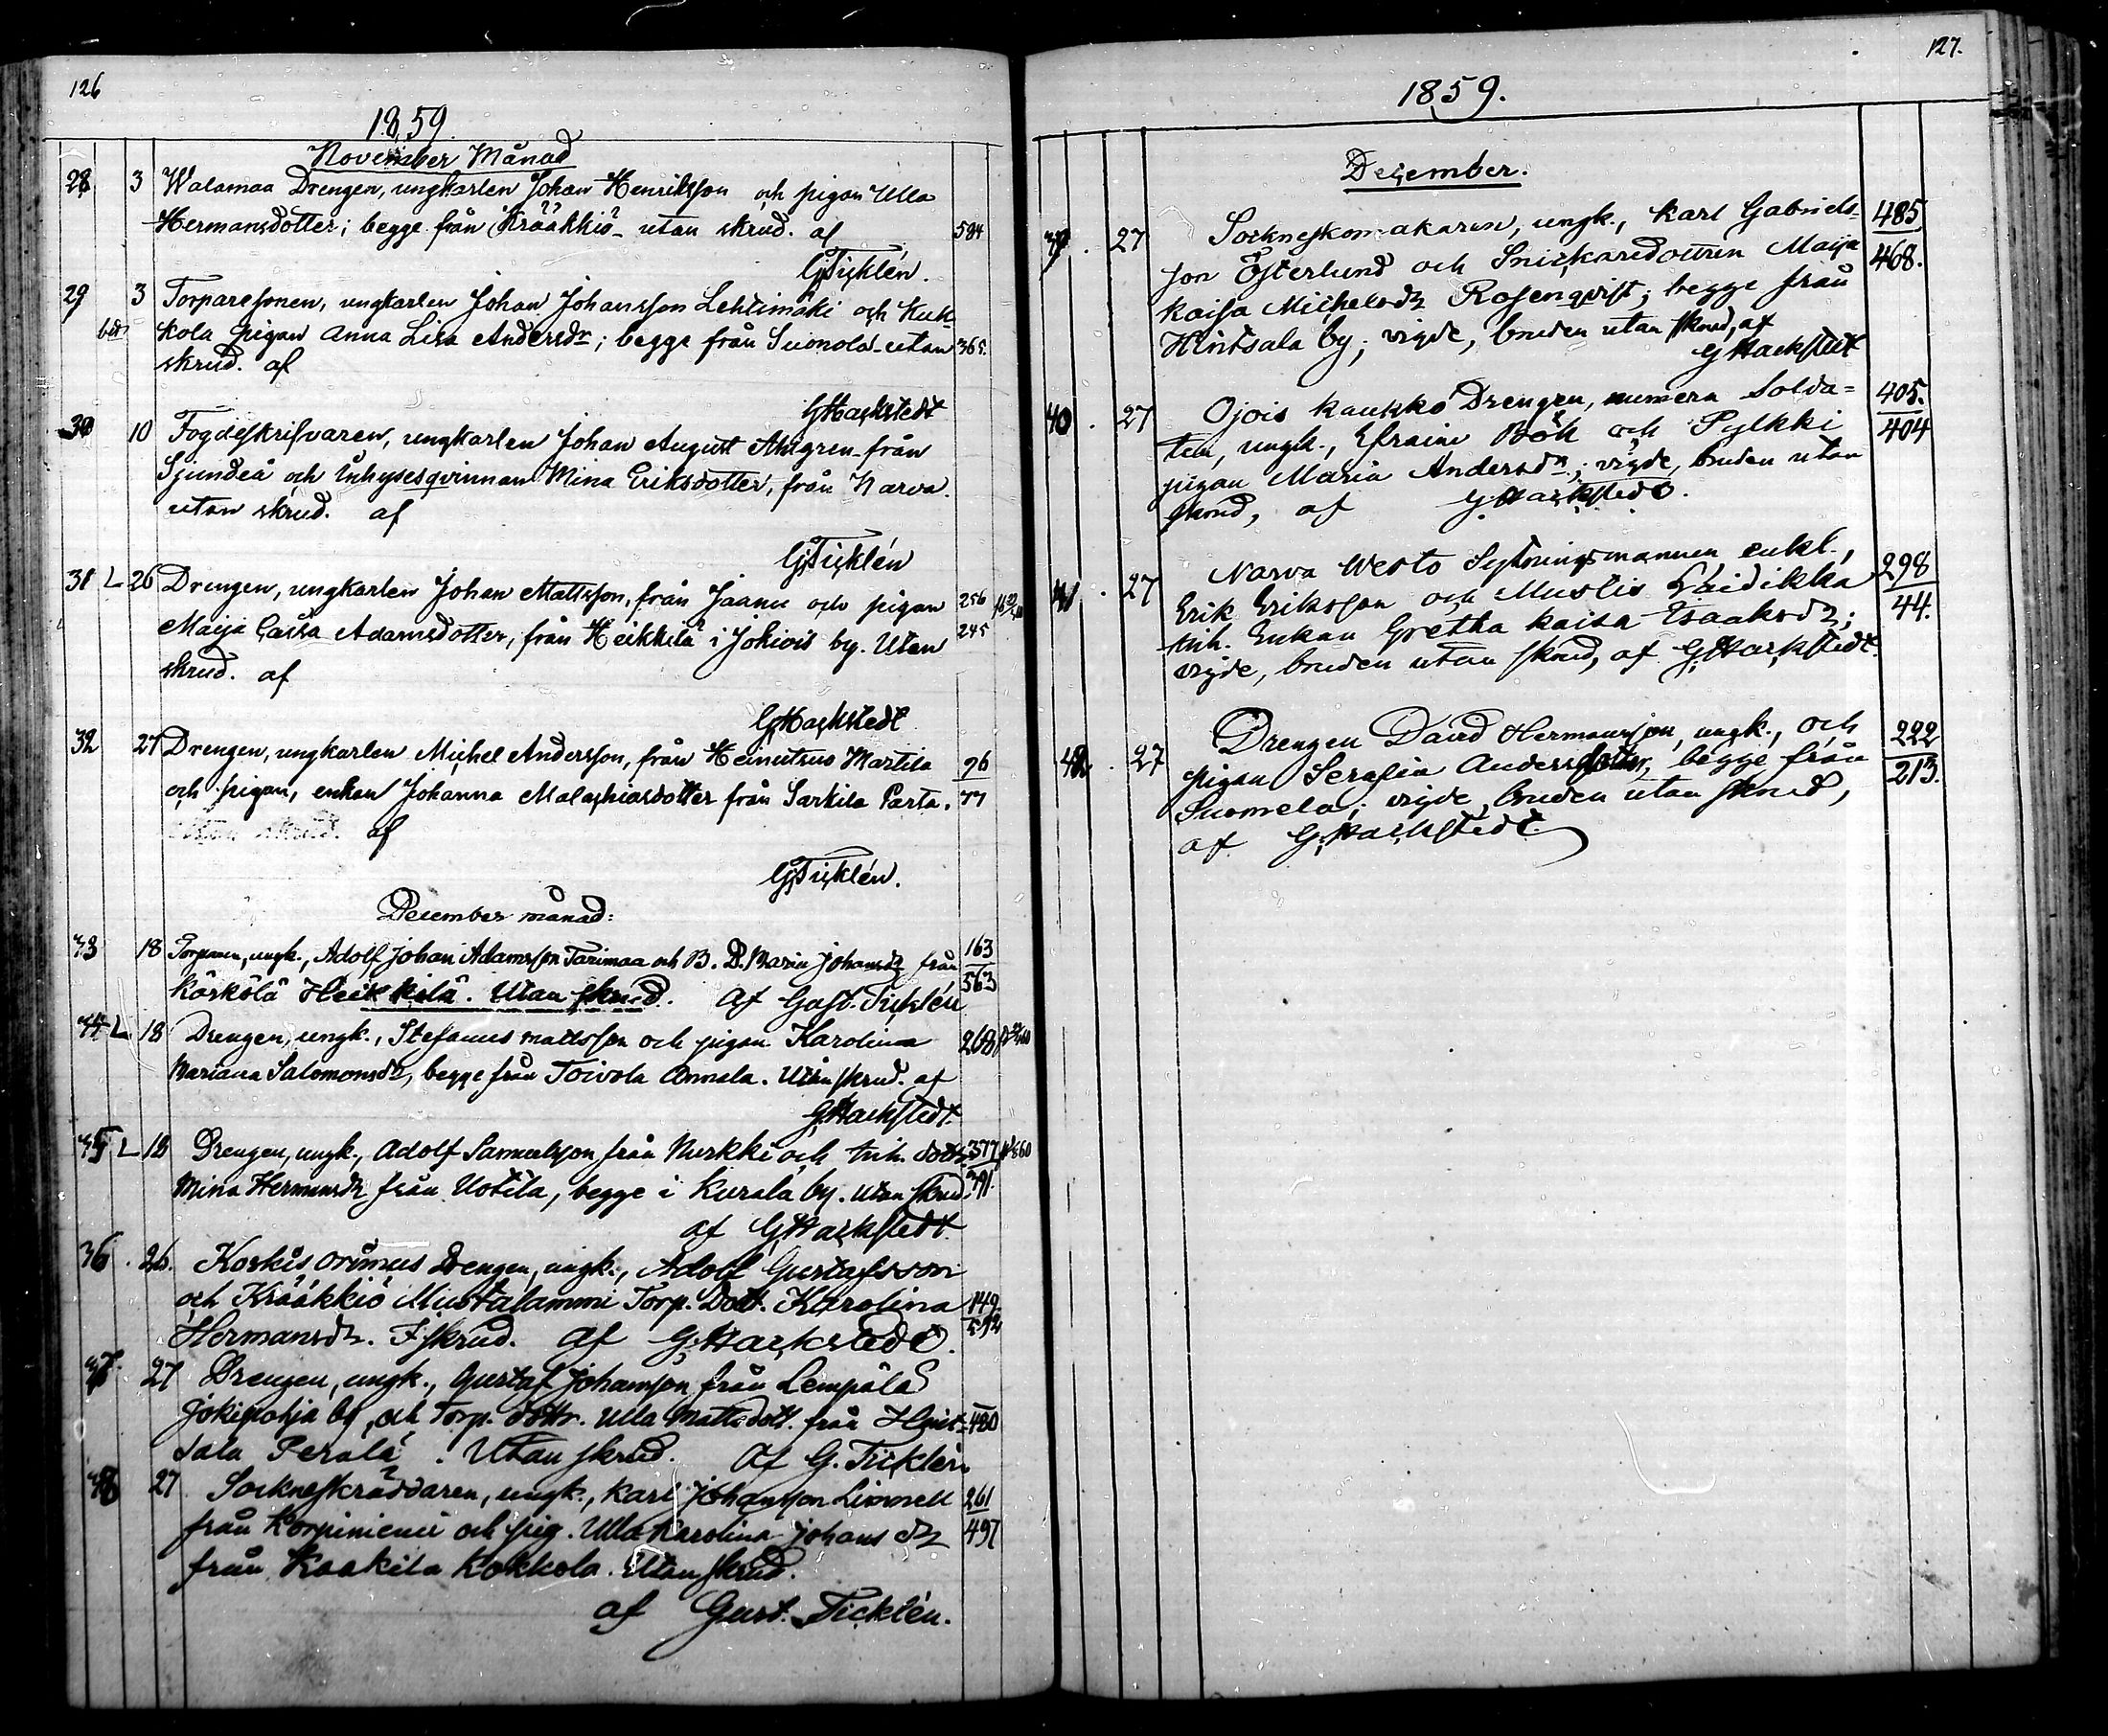 126
1859.
November Månad
28 3 Walamaa Drengen, ungkarlen Johan Henriksson och pigan Ulla
Hermansdotter; begge från Krääkkiö utan skrud. af 584
G Ticklén.
29 3 Torparesonen, ungkarlen Johan Johansson Lehtimäki och Kuk-
kola pigan Anna Lisa Andersdr; begge från Suonola utan 365.
skrud. af
G Hackstedt
30 10 Fogdeskrifvaren, ungkarlen Johan August Ahlgren från
Sjundeå och Inhysesqvinnan Mina Eriksdotter, från Narva.
utan skrud. af
G Ticklén
31 L 26 Drengen, ungkarlen Johan Mattsson, från Jaanu och pigan 256
Maija Caisa Adamsdotter, från Heikkilä i Jokiois by. Utan 245
skrud. af
G Hackstedt
32 27 Drengen, ungkarlen Michel Andersson, från Heinutrus Martila 96
och pigan, enkan Johanna Malachiasdotter från Sarkila Parta. 77
utan skrud. af
G Ticklén.
December månad:
33 18 Torparen, ungk., Adolf Johan Adamsson Tarimaa och B. D. Maria Johansdr från 163
Körkölä Heikkilä. Utan skrud. af Gust. Ticklén 563
34 L 18 Drengen, ungk., Stefanus Mattsson och pigan Karolina 268
Mariana Salomonsdr, begge från Toivola Annala. Utan skrud. af
G Hackstedt.
35 L 18 Drengen, ungk., Adolf Samuelsson från Nurkki och Inh. dottr. 377
Mina Hermansdr från Uotila, begge i Kurala by. Utan skrud. 391.
af G Hackstedt.
36 26. Koskis Drengen, ungk., Adolf Gustafsson
och Krääkkiö Mustalammi Torp. Dott. Karolina 149.
Hermansdr. I skrud. af G Hackstedt. 592
37 27 Drengen, ungk., Gustaf Johansson från Lempälä
Jokipohja by, och Torp. dottr. Ulla Mattsdott. från Hint- 480
sala Perälä. Utan skrud. af G. Ticklén
38 27 Sockneskräddaren, ungk., Karl Johansson Linnell 261
från Korpiniemi och pig. Ulla Karolina Johansdr 497
från Kaakila Kokkola. Utan skrud.
af Gust. Ticklén.
127.
1859.
December.
39 27 Sockneskomakaren, ungk., Karl Gabriels- 485
son Österlund och Snickaredottren Maija 468.
Kaisa Michelsdr Rosenqvist; begge från
Hintsala by; vigde, bruden utan skrud, af
G Hackstedt
40 27 Ojois Kaukko Drengen, numera Solda- 405.
ten, ungk., Efraim Bök och Pylkki 404
pigan Maria Andersdr; vigde, bruden utan
skrud, af G Hackstedt.
41 27 Narva Westo Sytningsmannen, enkl., 298
Erik Eriksson och Muslis Laidikka 44.
Inh. Enkan Gretha Kaisa Isaaksdr;
vigde, bruden utan skrud, af G Hackstedt.
42 27 Drengen David Hermansson, ungk., och 222
pigan Serafia Andersdotter, begge från 213.
Suomela; vigde, bruden utan skrud,
af G Hackstedt.